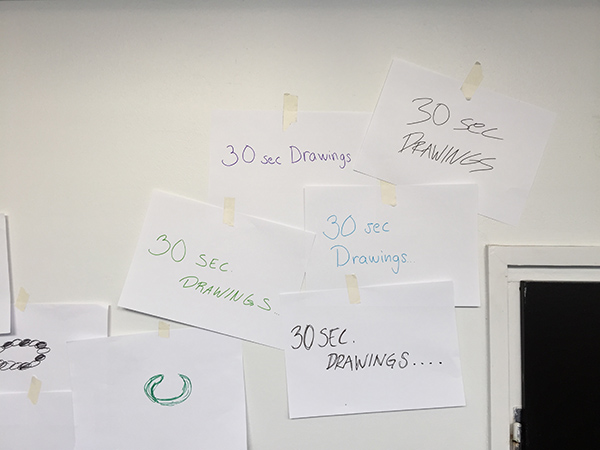 30 sec
DRAWINGS
30 sec Drawings
30 sec
Drawings
30 SEC.
DRAWINGS..
30 SEC.
DRAWINGS....